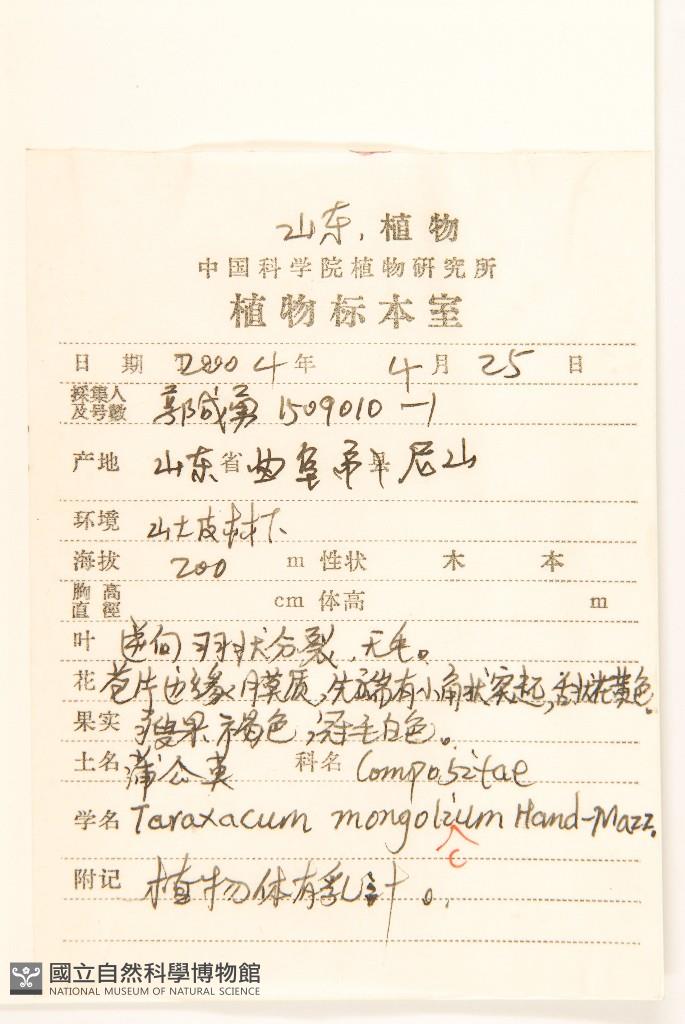 山东, 植物
中国科学院植物研究所
植物标本室
日期 2004年 4月 25日
採集人及号数 郭成勇 1509010-1
产地 山东省曲阜市县尼山
环境 山坡林下
海拔 200 m 性状 木 本
胸高直徑 cm 体高 m
叶 逆向羽状分裂,无毛。
花 苞片边缘膜质,先端有小角状突起,舌状花黄色。
果实 瘦果褐色,冠毛白色。
土名 蒲公英 科名 Compositae
学名 Taraxacum mongolium Hand-Mazz.
c
附记 植物体有乳汁。
國立自然科學博物館
NATIONAL MUSEUM OF NATURAL SCIENCE